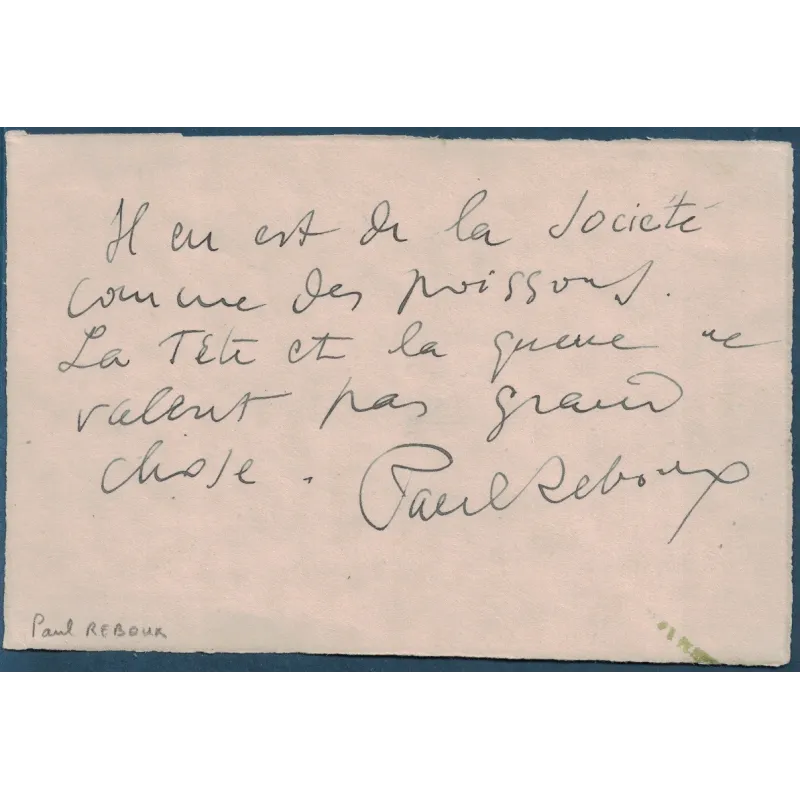 Il en est de la Société
comme des poissons.
La Tête et la queue ne
valent pas grand
chose. Paul Reboux
Paul REBOUX